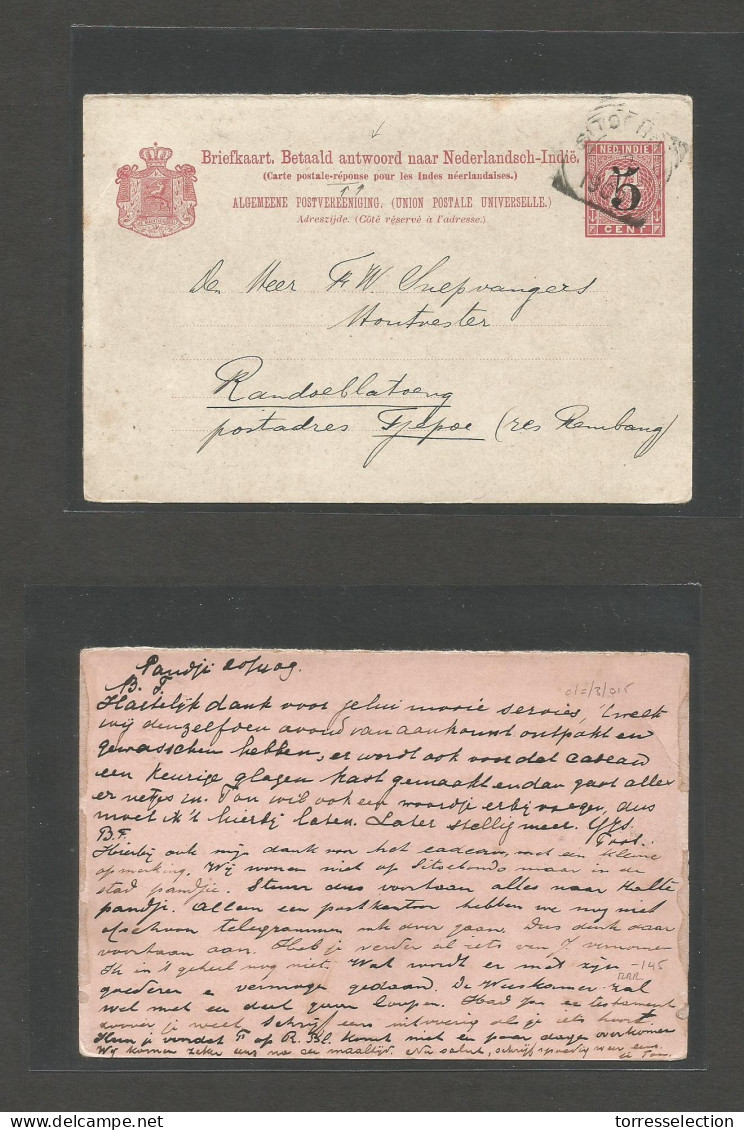 Briefkaart. Betaald antwoord naar Nederlandsch-Indië.
(Carte postale-réponse pour les Indes néerlandaises.)
ALGEMEENE POSTVEREENIGING. (UNION POSTALE UNIVERSELLE.)
Adreszijde. (Côté réservé à l'adresse.)
NED. INDIE
5
CENT
Den Heer F. W. Snepvangers
Houtvester
Randoeblatoeng
postadres Tjepoe (res Rembang)
Pandji
B. F.
Hartelijk dank voor jelui mooie servies, 't welk
wij denzelfden avond van aankomst ontpakt en
gewasschen hebben, er wordt ook voor dat cadeau
een keurige glazen kast gemaakt en dan gaat alles
er netjes in. Ton wil ook een woordje erbij voegen, dus
moet ik 't hierbij laten. Later stellig meer.
B. F.
Hierbij ook mijn dank voor het cadeau, met een kleine
opmerking. Wij wonen niet op Sitoebondo maar in de
stad pandjie. Stuur dus voortaan alles naar Halte
pandji. Alleen een postkantoor hebben we nog niet
ofschoon telegrammen ook over gaan. Dus denk daar
voortaan aan. Heb je verder al iets van J. vernomen
Ik in 't geheel nog niet. Wat wordt er met zijn
goederen e vermogen gedaan. De Weeskamer zal
wel met een deel gaan loopen. Had Jan een testament
je weet schrijf eens uitvoerig als je iets hoort
Kun je voordat F op R. Bl. komt met een paar dagen overkomen
Wij komen zeker eens na de maaltijd. Nu saluut, schrijf spoedig weer eens
RRR
-145
www.delcampe.net
torresselection